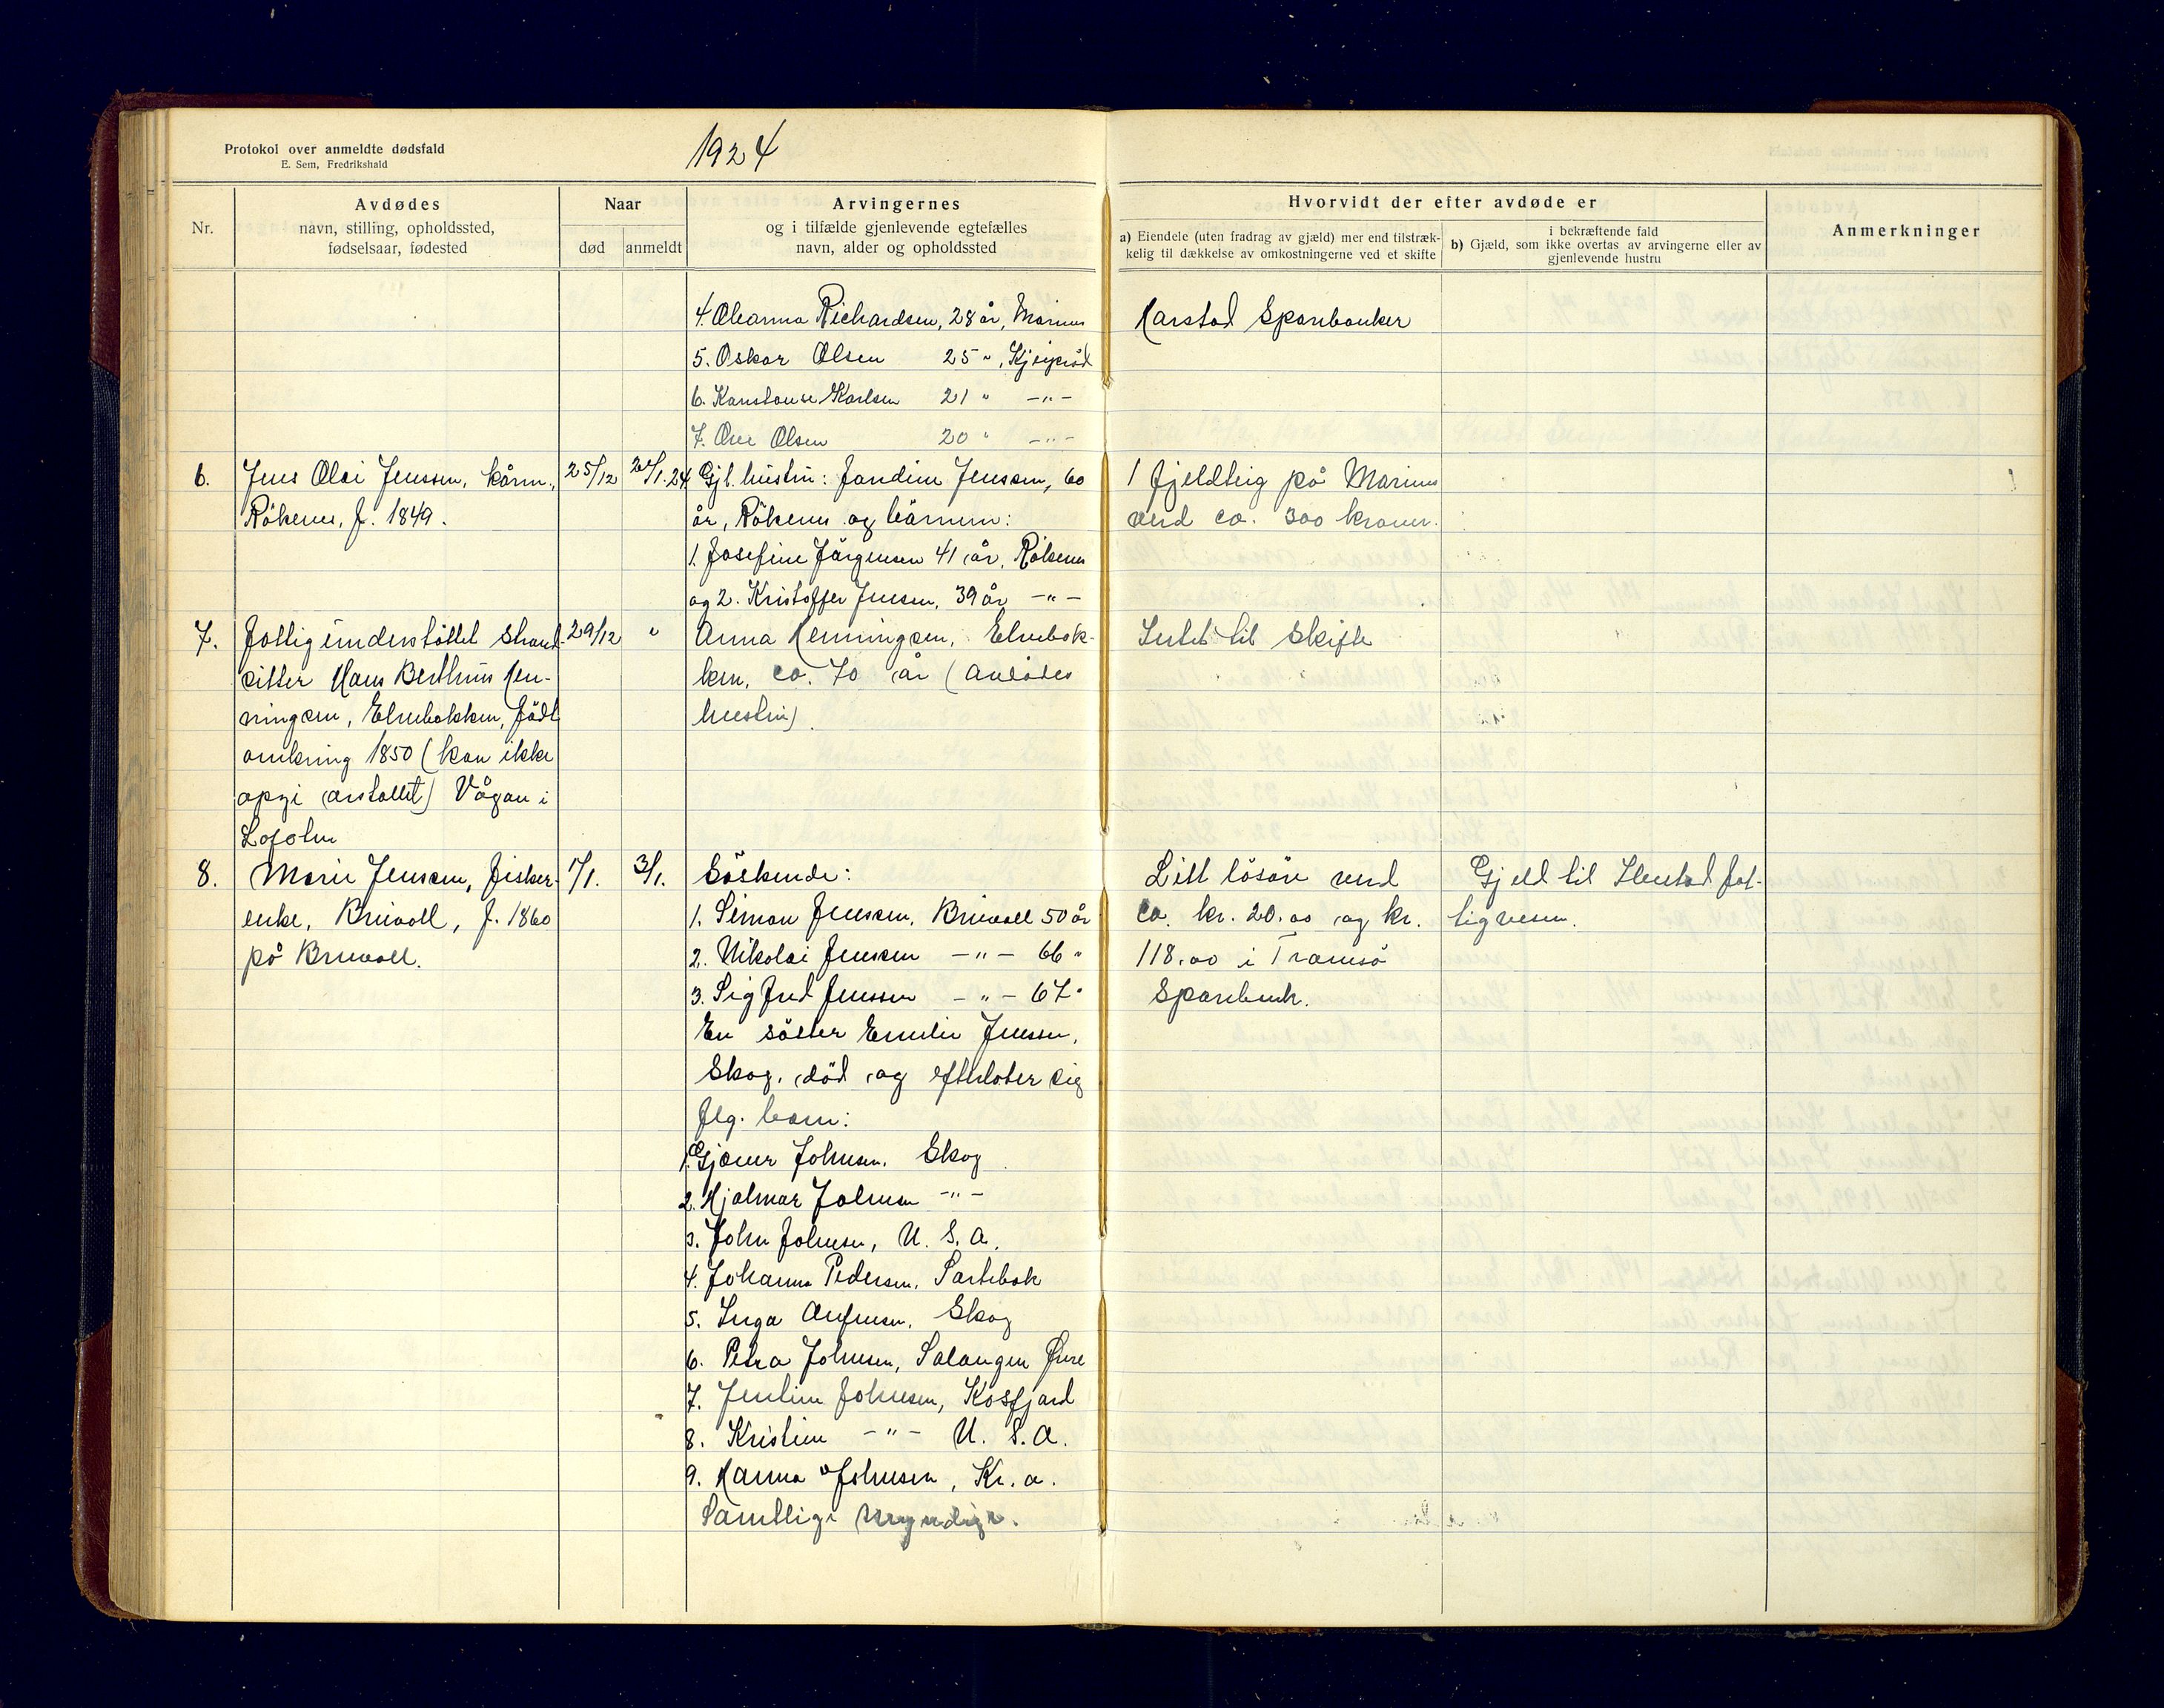 Protokol over anmeldte dødsfald
E. Sem, Fredrikshald
1924
Nr.
Avdødes
navn, stilling, opholdssted,
fødselsaar, fødested
Naar
død
anmeldt
Arvingernes
og i tilfælde gjenlevende egtefælles
navn, alder og opholdssted
Hvorvidt der efter avdøde er
a) Eiendele (uten fradrag av gjæld) mer end tilstræk-
kelig til dækkelse av omkostningerne ved et skifte
i bekræftende fald
b) Gjæld, som ikke overtas av arvingerne eller av
gjenlevende hustru
Anmerkninger
4. Oleanna Richardsen, 28 år, Marines
5. Oskar Olsen 25 " ,
6. Karlsen 21 " -"-
7. Ove Olsen 20 " -"-
Harstad Sparebanker
6. Jens Olai Jenssen, kårm., 25/12 2/1.24
Rökenes, f. 1849.
Gjl. hustru: Jandine Jenssen, 60
år, Rökenes og barnene:
1. Josefine Jörgensen 41 år, Rökenes
og 2. Kristoffer Jenssen, 39 år -"-
1 fjeldteig på Marines
verd ca. 300 kroner.
7. Fattigunderstöttet strand- 29/12 "
sitter Hans Berthius Hen-
ningsen, Elvebakken, födt
omkring 1850 (kan ikke
opgi årstallet) Vågan i
Lofoten
Anna Henningsen, Elvebak-
ken, ca. 70 år (avdödes
hustru).
Intet til skifte
8. Marie Jenssen, fisker- 1/1. 3/1.
enke, Bruvoll, f. 1860
på Bruvoll.
Söskende:
1. Simon Jenssen, Bruvoll 50 år
2. Nikolai Jenssen -"- 66 "
3. Sigfred Jenssen -"- 67 "
En söster Emelie Jenssen,
Skog, död og efterlater sig
flg. barn:
1. Gjæver Johnsen, Skog
2. Hjalmar Johnsen -"-
3. John Johnsen, U. S. A.
4. Johanna Pedersen,
5. Inga Arnfinsen, Skog
6. Petra Johnsen, Salangen Övre
7. Jentine Johnsen, Kasfjord
8. Kristine -"- U. S. A.
9. Hanna Johnsen, Kr. a.
Samtlige myndige.
Litt lösöre verd
ca. kr. 20.00 og kr.
118.00 i Tromsö
Sparebank.
Gjeld til Ibestad fat-
tigvesen.